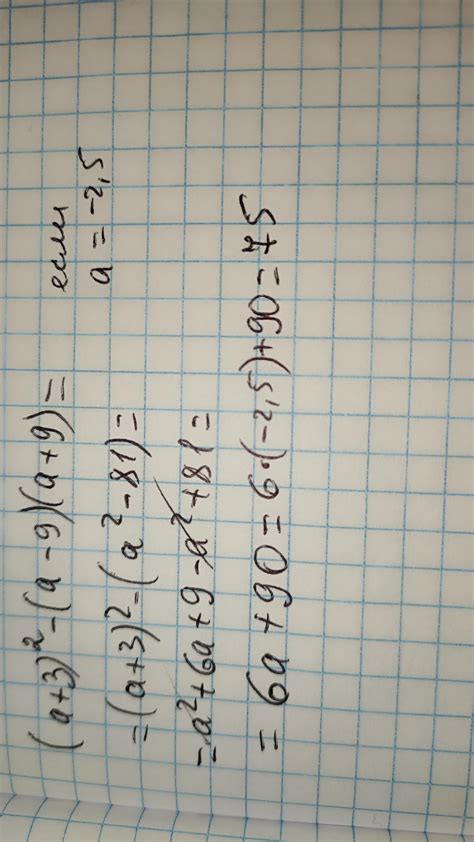 (a+3)²-(a-9)(a+9)= если
a=-2,5
=(a+3)²-(a²-81)=
=a²+6a+9-a²+81=
=6a+90=6·(-2,5)+90=75